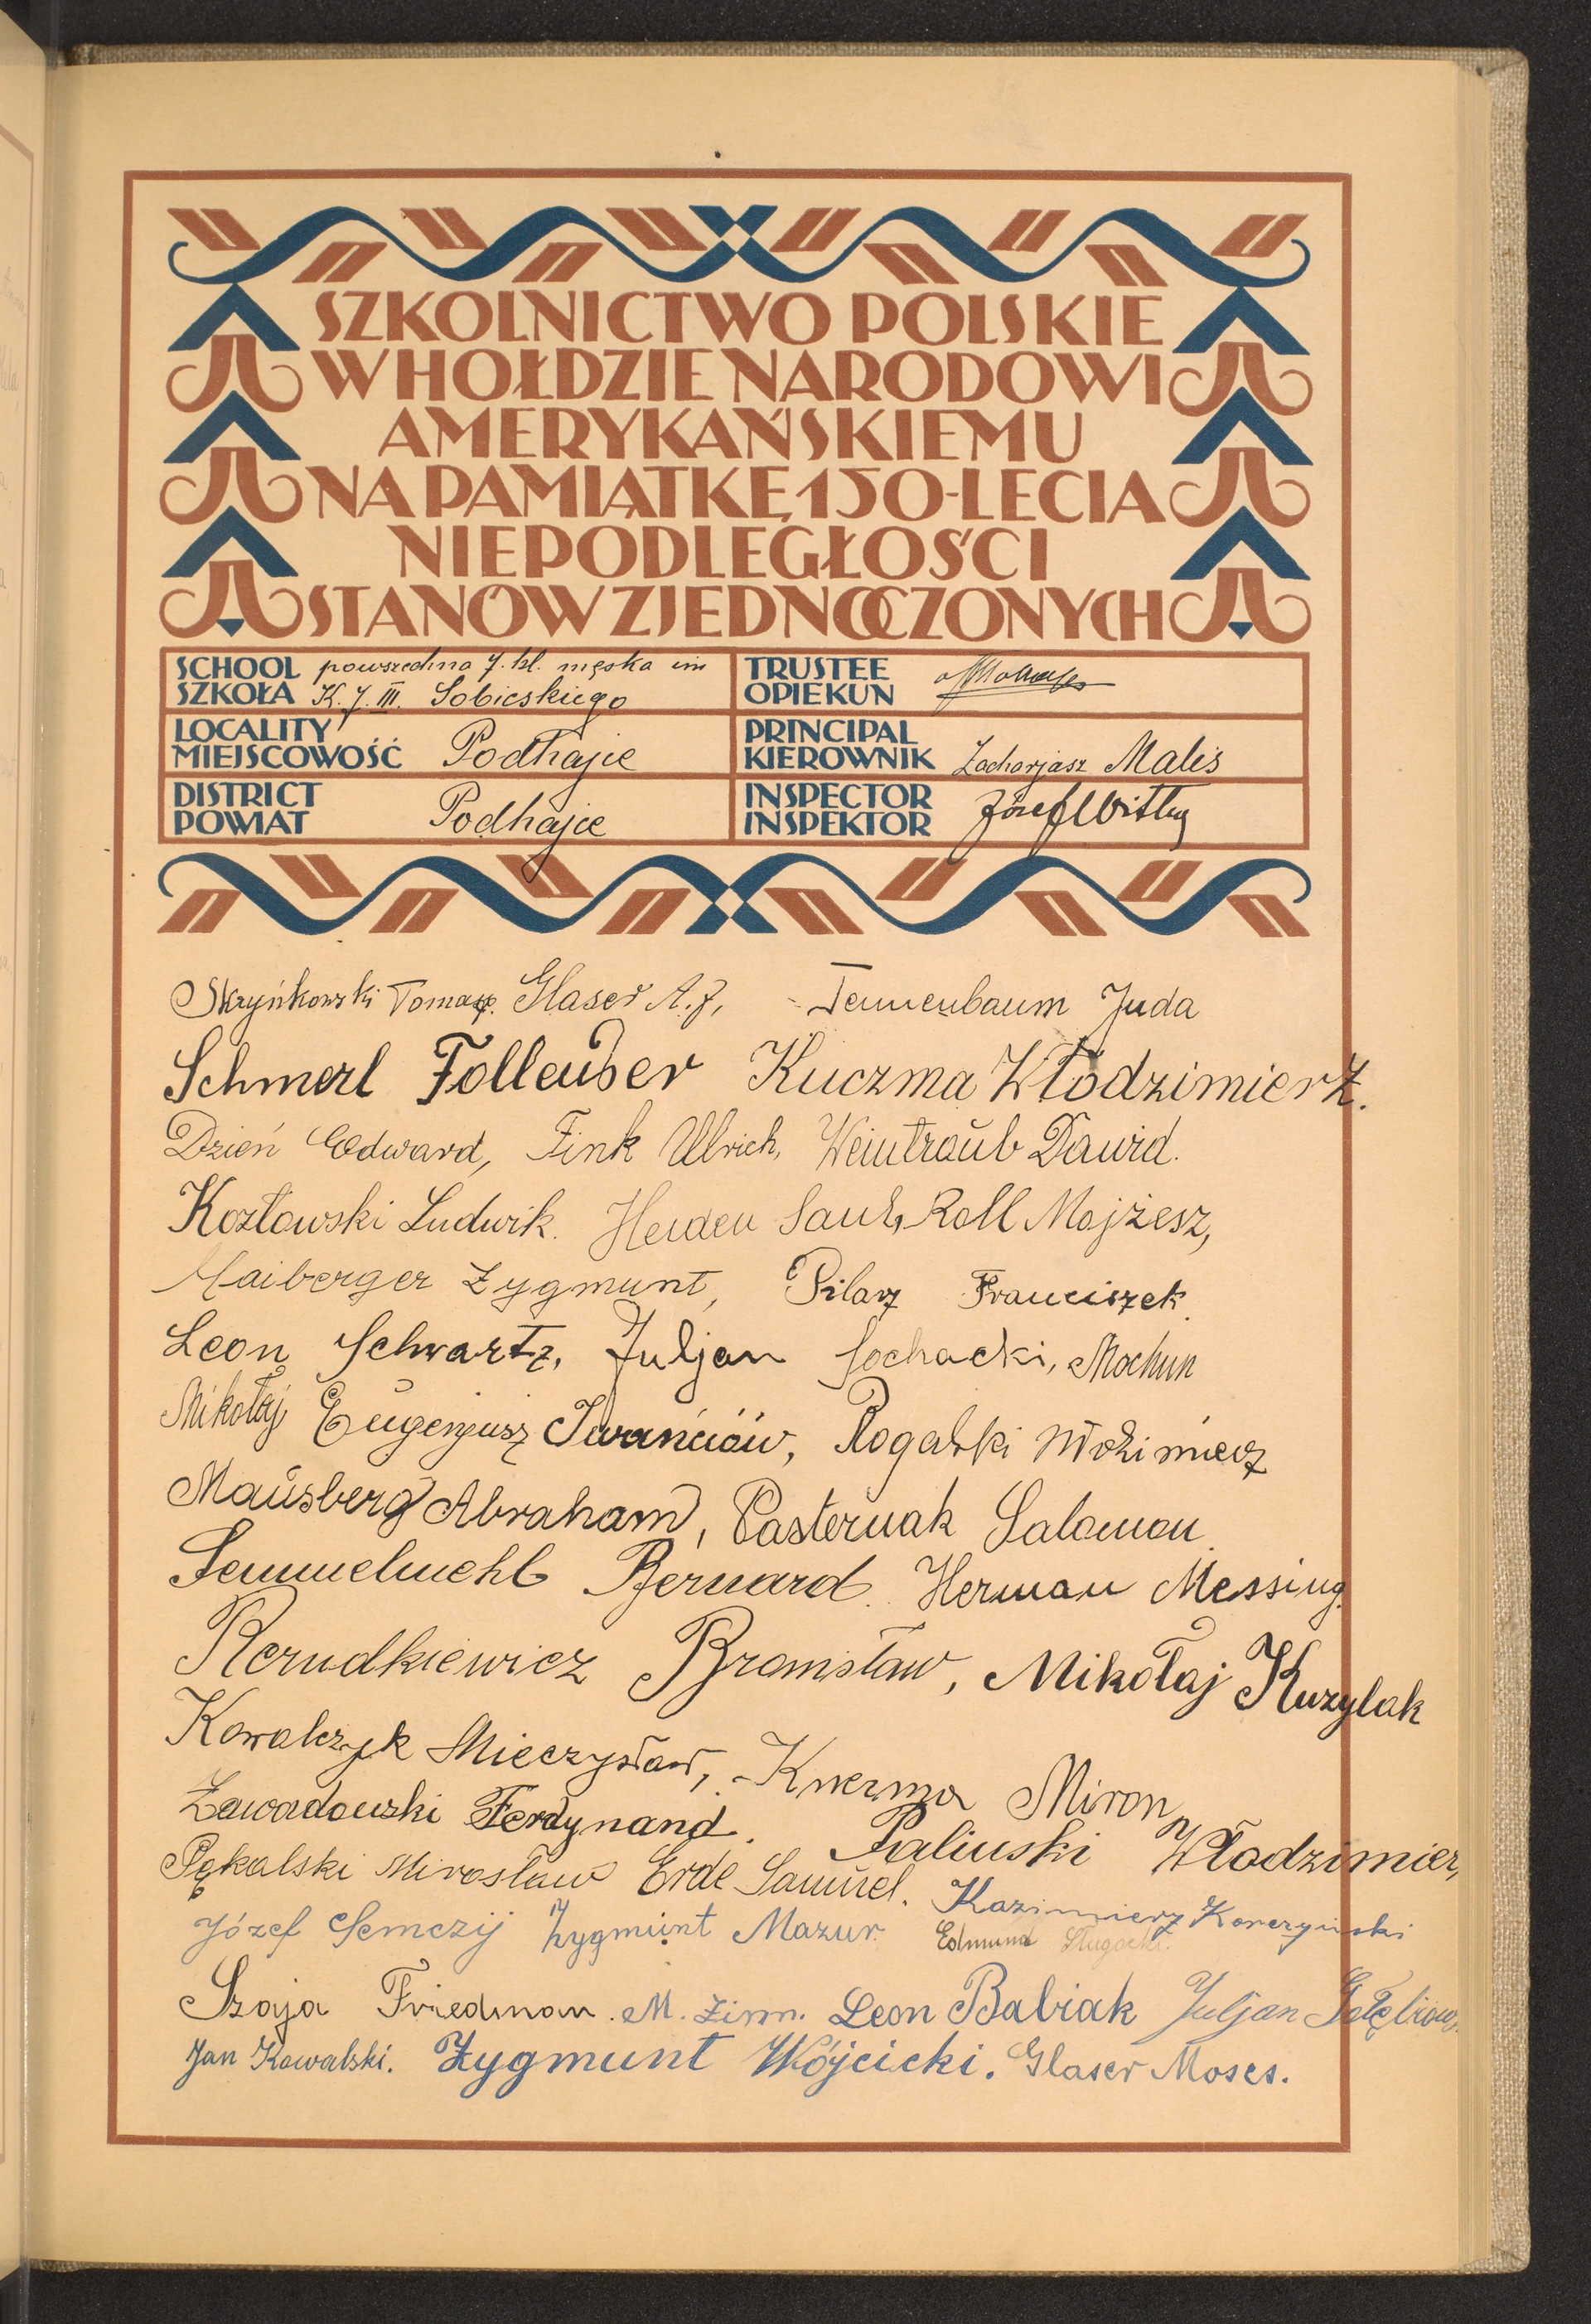 SZKOLNICTWO POLSKIE
W HOŁDZIE NARODOWI
AMERYKAŃSKIEMU
NA PAMIĄTKĘ 150-LECIA
NIEPODLEGŁOŚCI
STANÓW ZJEDNOCZONYCH
SCHOOL SZKOŁA powszechna 7. kl. męska im K. J. III. Sobieskiego
TRUSTEE OPIEKUN
LOCALITY MIEJSCOWOŚĆ Podhajce
PRINCIPAL KIEROWNIK Zacharjasz Maliś
DISTRICT POWIAT Podhajce
INSPECTOR INSPEKTOR Józef Wittig
Skrzyńkowski Tomasz. Glaser A. J, Tennenbaum Juda
Schmerl Folleuser Kuczma Włodzimierz.
Dzień Edward, Fink Ulrich, Weintraub Dawid.
Kozłowski Ludwik. Heiden Saul, Roll Mojżesz,
Maiberger Zygmunt, Pilarz Franciszek
Leon Schwartz, Juljan Sochacki, Mochun
Mikołaj Eugenjusz Iwańciów, Rogalski
Mausberg Abraham, Pasternak Salomon.
Semmelmehl Bernard. Herman Messing.
Bronisław, Mikołaj Kuzylak
Kowalczyk Mieczysław, Miron,
Zawadowski Ferdynand. Paliuski Włodzimierz,
Pękalski Mirosław Erde Samuel. Kazimierz Korczyński
Józef Semczij Zygmunt Mazur. Edmund Sługocki.
Szaja Friedman. M. Zinn. Leon Babiak Juljan
Jan Kowalski. Zygmunt Wójcicki. Glaser Moses.